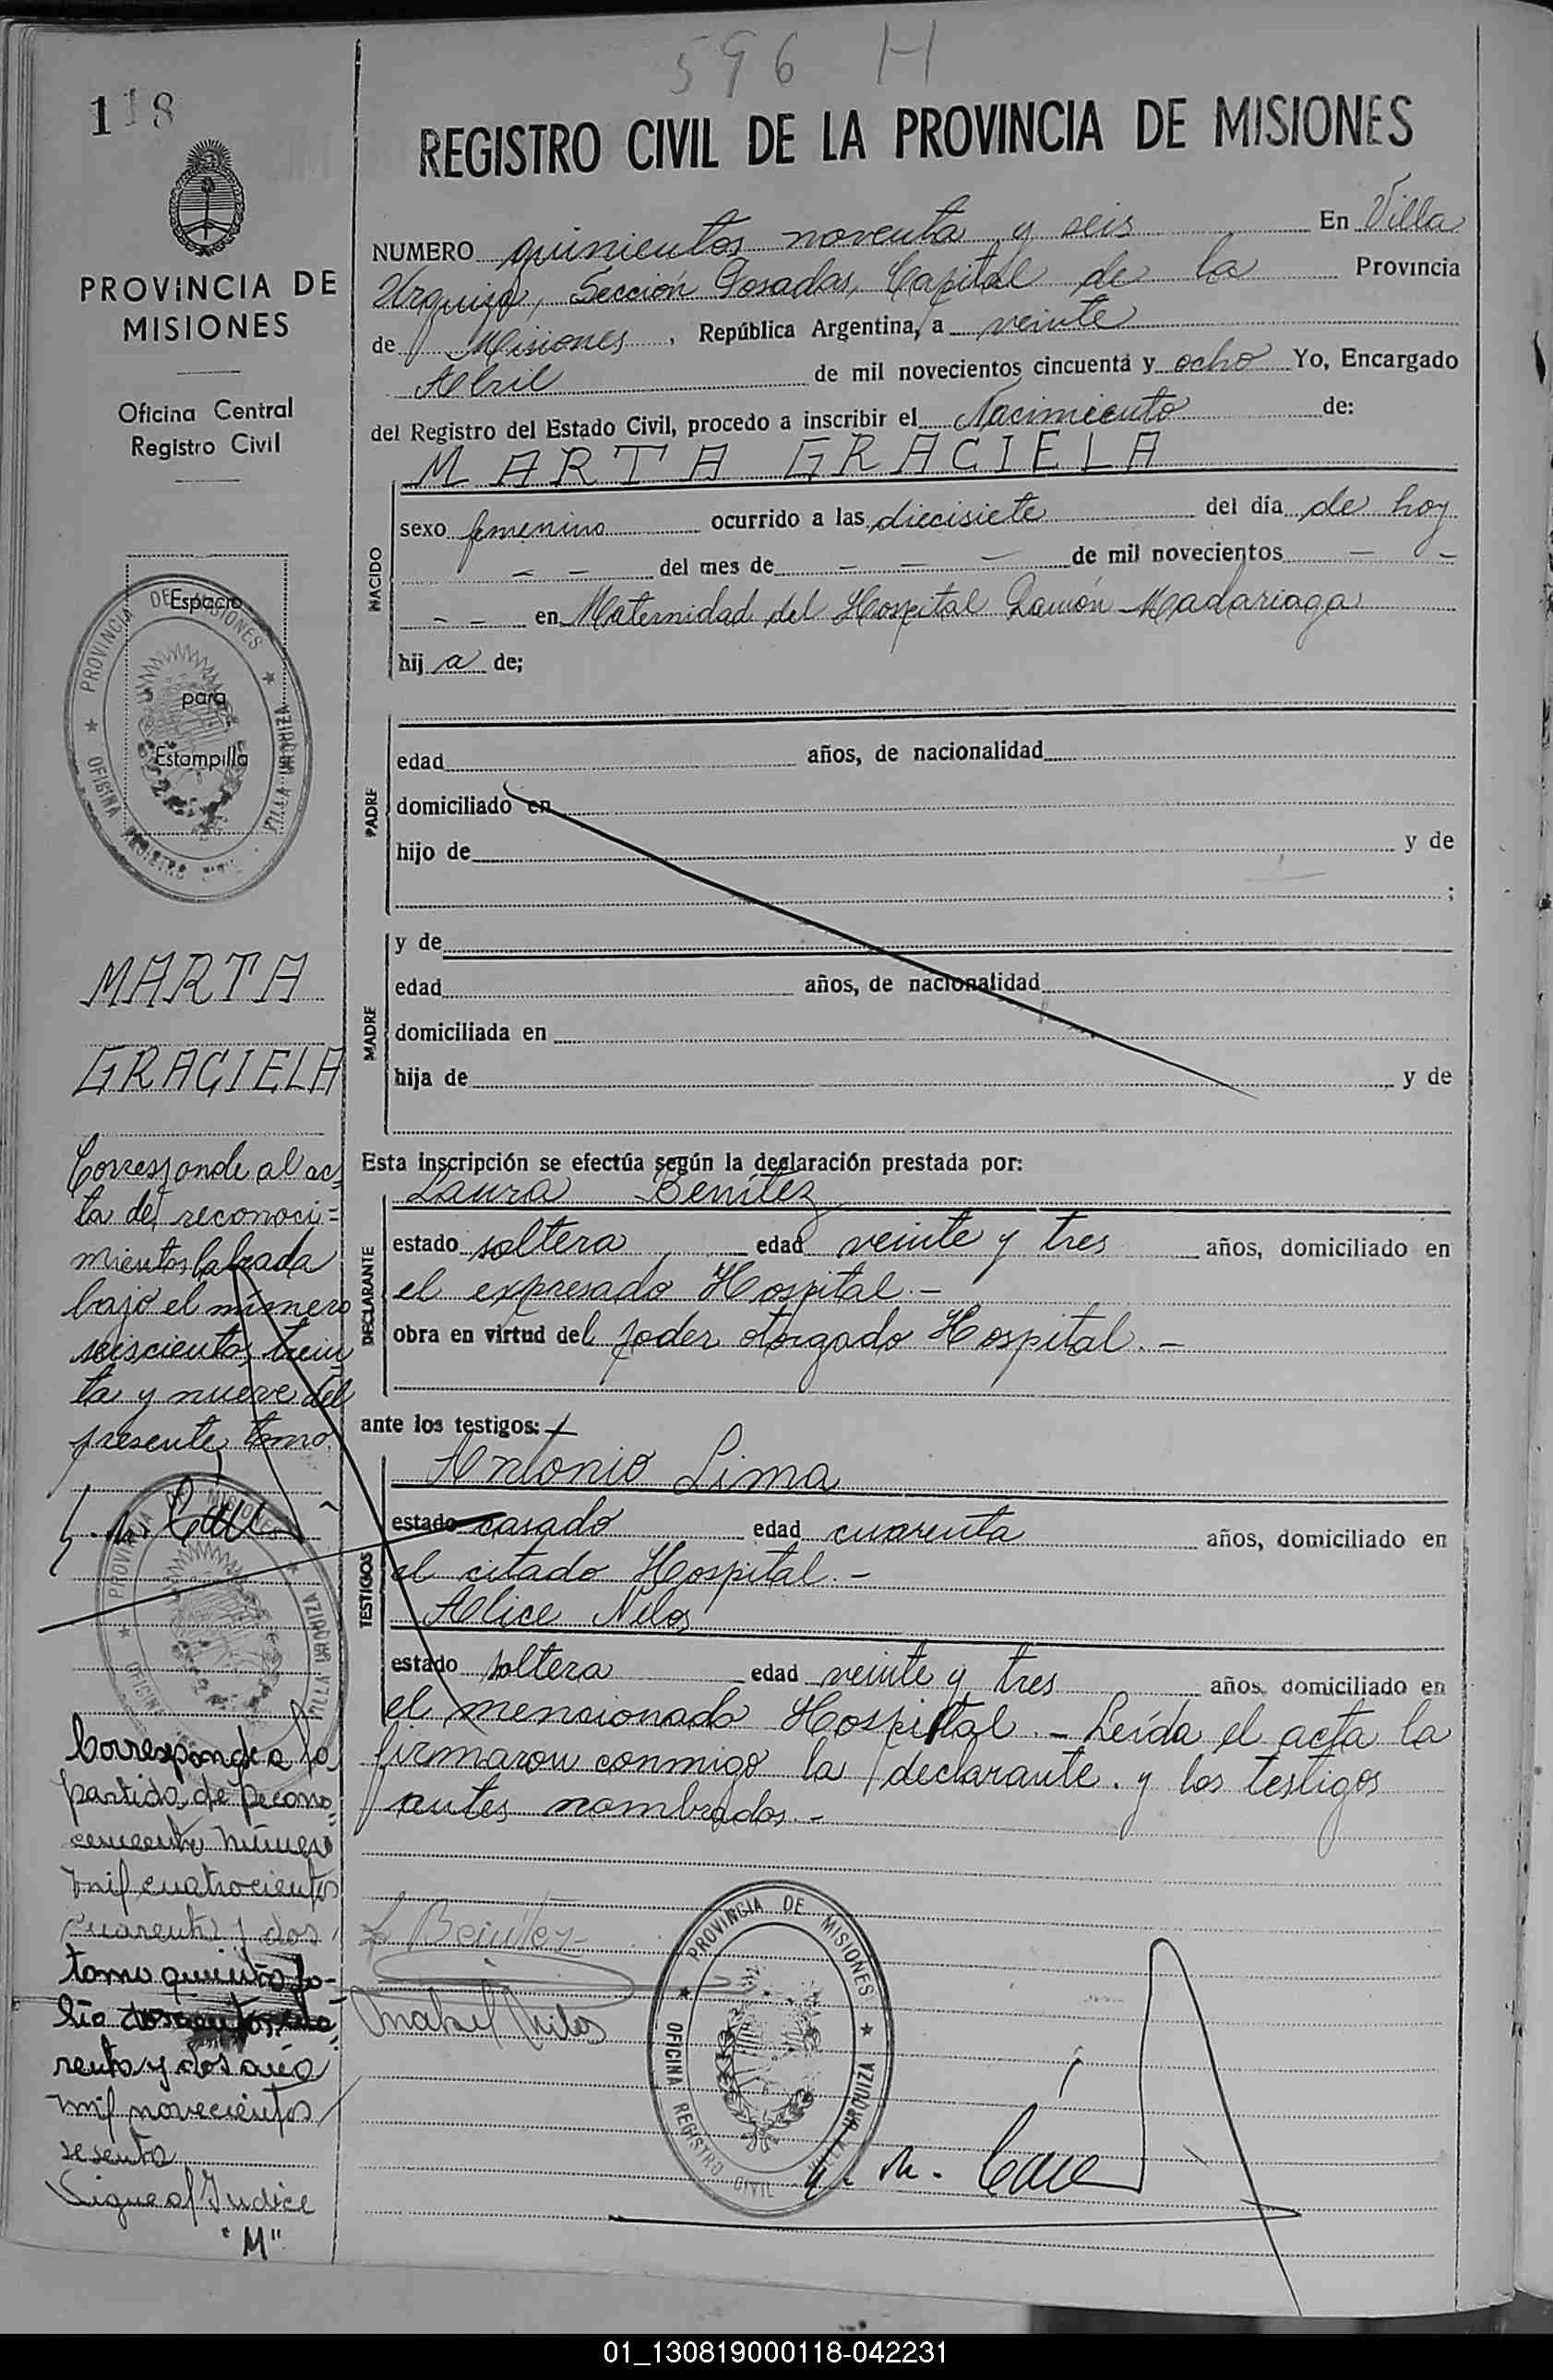 596 H
118
REGISTRO CIVIL DE LA PROVINCIA DE MISIONES
PROVINCIA DE
MISIONES
Oficina Central
Registro Civil
NUMERO quinientos noventa y seis En Villa
Urquiza, Sección Posadas, Capital de la Provincia
de Misiones, República Argentina, a veinte
Abril de mil novecientos cincuenta y ocho Yo, Encargado
del Registro del Estado Civil, procedo a inscribir el Nacimiento de:
MARTA GRACIELA
NACIDO
sexo femenino ocurrido a las diecisiete del día de hoy
- - del mes de - - - de mil novecientos - -
- - en Maternidad del Hospital Ramón Madariaga
hija de;
PADRE
edad años, de nacionalidad
domiciliado en
hijo de y de
;
MADRE
y de
edad años, de nacionalidad
domiciliada en
hija de y de
Esta inscripción se efectúa según la declaración prestada por:
DECLARANTE
Laura Benítez
estado soltera, edad veinte y tres años, domiciliado en
el expresado Hospital.-
obra en virtud del poder otorgado Hospital.-
ante los testigos:
TESTIGOS
Antonio Lima
estado casado edad cuarenta años, domiciliado en
el citado Hospital.-
Alice Nilos
estado soltera edad veinte y tres años, domiciliado en
el mencionado Hospital.- Leída el acta la
firmaron conmigo la declarante. y los testigos
antes nombrados.-
L Benítez
PROVINCIA DE MISIONES
OFICINA REGISTRO CIVIL VILLA URQUIZA
Espacio
para
Estampilla
PROVINCIA DE MISIONES
OFICINA REGISTRO CIVIL VILLA URQUIZA
MARTA
GRACIELA
Corresponde al ac
ta de reconoci=
miento labrada
bajo el número
seiscientos trein
ta y nueve del
presente tomo.
PROVINCIA DE MISIONES
OFICINA VILLA URQUIZA
Corresponde a la
partida de recono
cimiento número
mil cuatrocientos
cuarenta y dos
tomo quinto fo-
lio doscientos cua
renta y dos año
mil novecientos
sesenta
Sigue al Indice
"M"
01_130819000118-042231